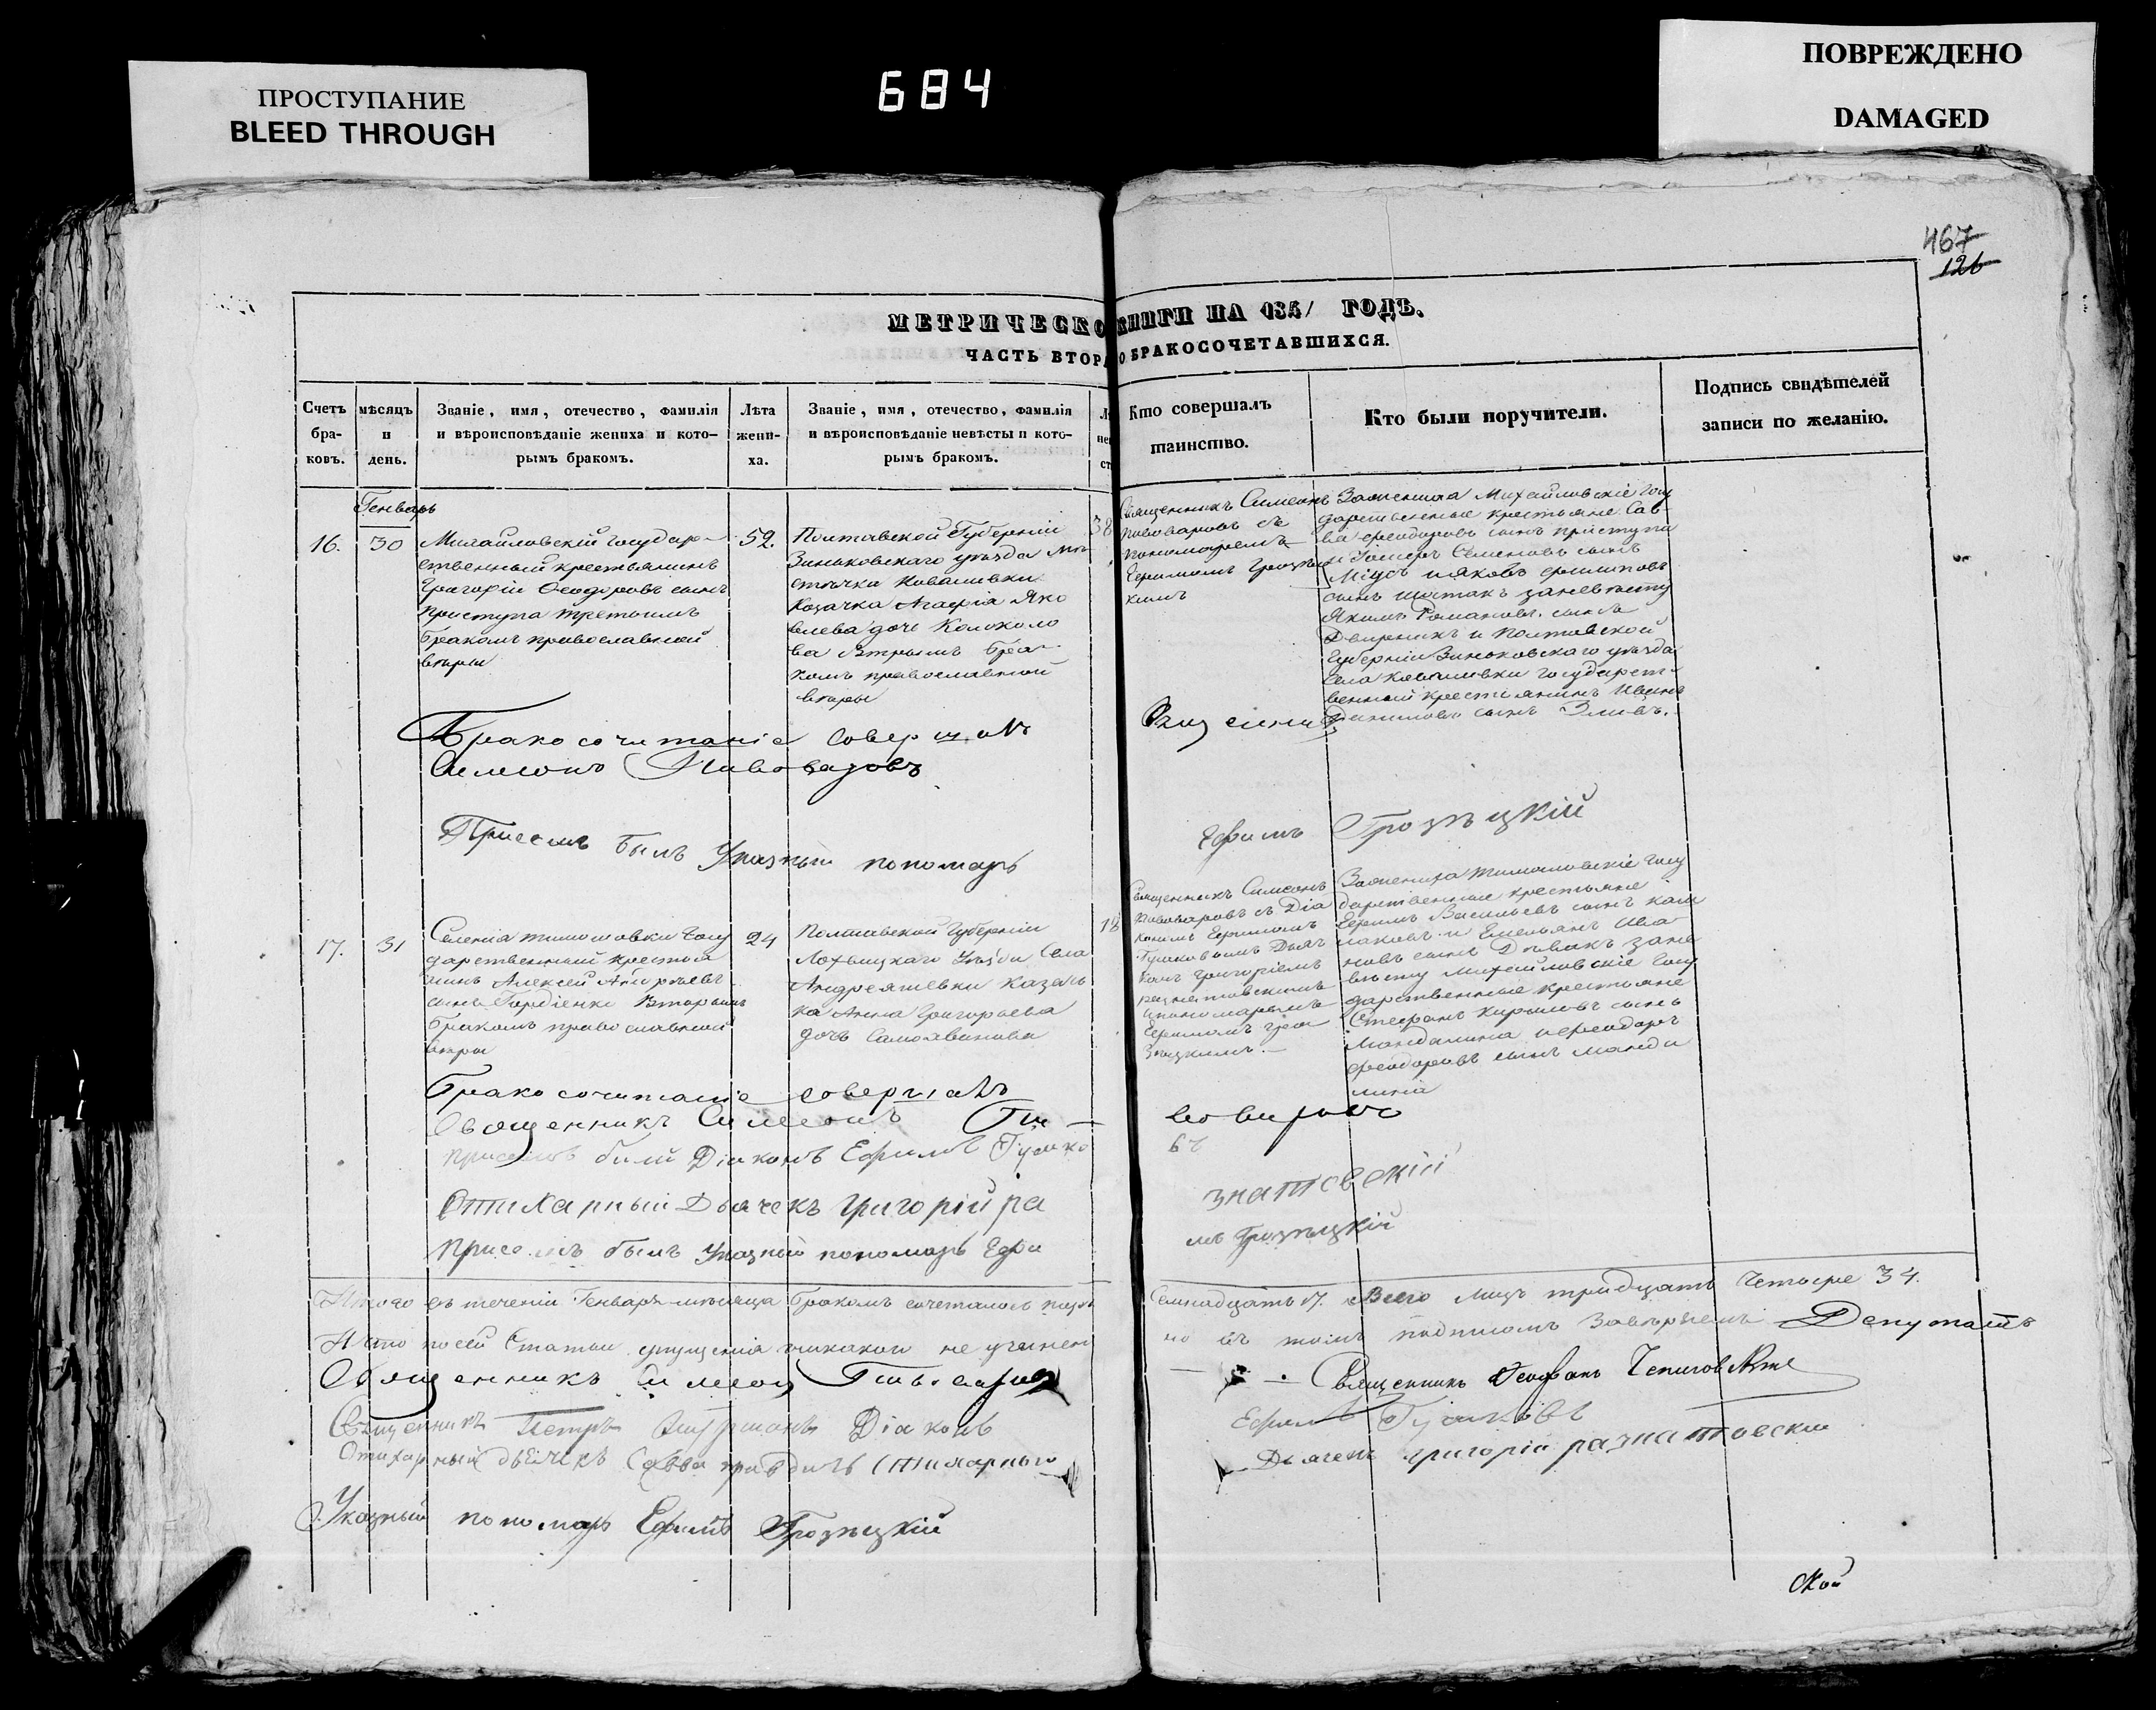 ПРОСТУПАНИЕ
BLEED THROUGH
684
ПОВРЕЖДЕНО
DAMAGED
467
126
МЕТРИЧЕСКО КНИГИ НА 1851 ГОДЪ.
ЧАСТЬ ВТОРА О БРАКОСОЧЕТАВШИХСЯ.
Счетъ бра- ковъ.
мѣсяцъ и день.
Званіе, имя, отечество, фамилія и вѣроисповѣданіе жениха и кото- рымъ бракомъ.
Лѣта жени- ха.
Званіе, имя, отечество, фамилія и вѣроисповѣданіе невѣсты и кото- рымъ бракомъ.
Кто совершалъ таинство.
Кто были поручители.
Подпись свидѣтелей записи по желанію.
Генварь
16.
30
Михайловскій государ-
ственный крестьянинъ
Григорій Ѳеодоровъ сынъ
Приступа третьимъ
бракомъ православной
вѣры
52.
Полтавской Губерніи
Зиньковскаго уѣзда мѣ
стечка Ковалевки
Козачка Агафія Яко
влева дочь Колоколо
ва вторымъ бра-
комъ православной
вѣры
38
Священникъ Симеонъ
Пивоваровъ съ
пономаремъ
Ефимомъ Грозец
кимъ
Заженіха Михайловскіе Госу
дарственные крестьяне Сав-
ва Ѳеодоровъ сынъ приступа
и Семеновъ сынъ
Міусъ и Яковъ Филиповъ
сынъ Шостакъ заневѣсту
Якимъ Романовъ сынъ
и Полтавской
Губерніи Зиньковскаго уѣзда
Села Ковалевки государст-
венный крестьянинъ Иванъ
Даниловъ сынъ
Бракосочитаніе совершалъ
Симеонъ Пивоваровъ
Священникъ
Присемъ былъ Указный пономарь
Ефимъ Грозецкій
17.
31
Селенія Тимошовки Госу
дарственный крестья
нинъ Алексей
сынъ Гордіенко вторымъ
бракомъ православной
вѣры
24
Полтавской Губерніи
Лохвицкаго Уѣзда Села
Андреяшевки Казач
ка Анна Григорьева
дочь
18
Священникъ Симеонъ
Пивоваровъ съ Діа
кономъ Ефимомъ
Гушковымъ Дьяч
комъ Григоріемъ
разнатовскимъ
и пономаремъ
Ефимомъ Гро
зецкимъ.—
Заженіха Тимошовскіе Госу
дарственные крестьяне
Ефимъ Васильевъ сынъ Кол
паковъ и Емельянъ Ива
новъ сынъ зане
вѣсту Михайловскіе Госу
дарственные крестьяне
Стефанъ Кириловъ сынъ
Мандалина и Ѳеодоръ
Ѳеодоровъ сынъ Манда
лина
Бракосочитаніе совершалъ
Священникъ Симеонъ Пи—
воваровъ
присемъ были Діаконъ Ефимъ Гушко
въ
Стихарный Дьячекъ Григорій ра
знатовскій
присемъ былъ Указный пономарь Ефи
мъ Грозецкій
Итого въ теченіи Генваря мѣсяца бракомъ сочеталось
Семнадцать 17. Всего лицъ тридцать четыре 34.
А что посей Статьи упущенія никакой не учинен
но въ томъ подписомъ завѣряемъ Депутатъ
Священникъ Симеон Пивоваров
Священникъ Ѳеофанъ
Священникъ Петръ Діаконъ
Ефимъ Гушковъ
Стихарный дьячекъ Савва Стихарный
Дьячекъ григорій разнатовскій
Указный пономарь Ефимъ Грозецкій
Ской